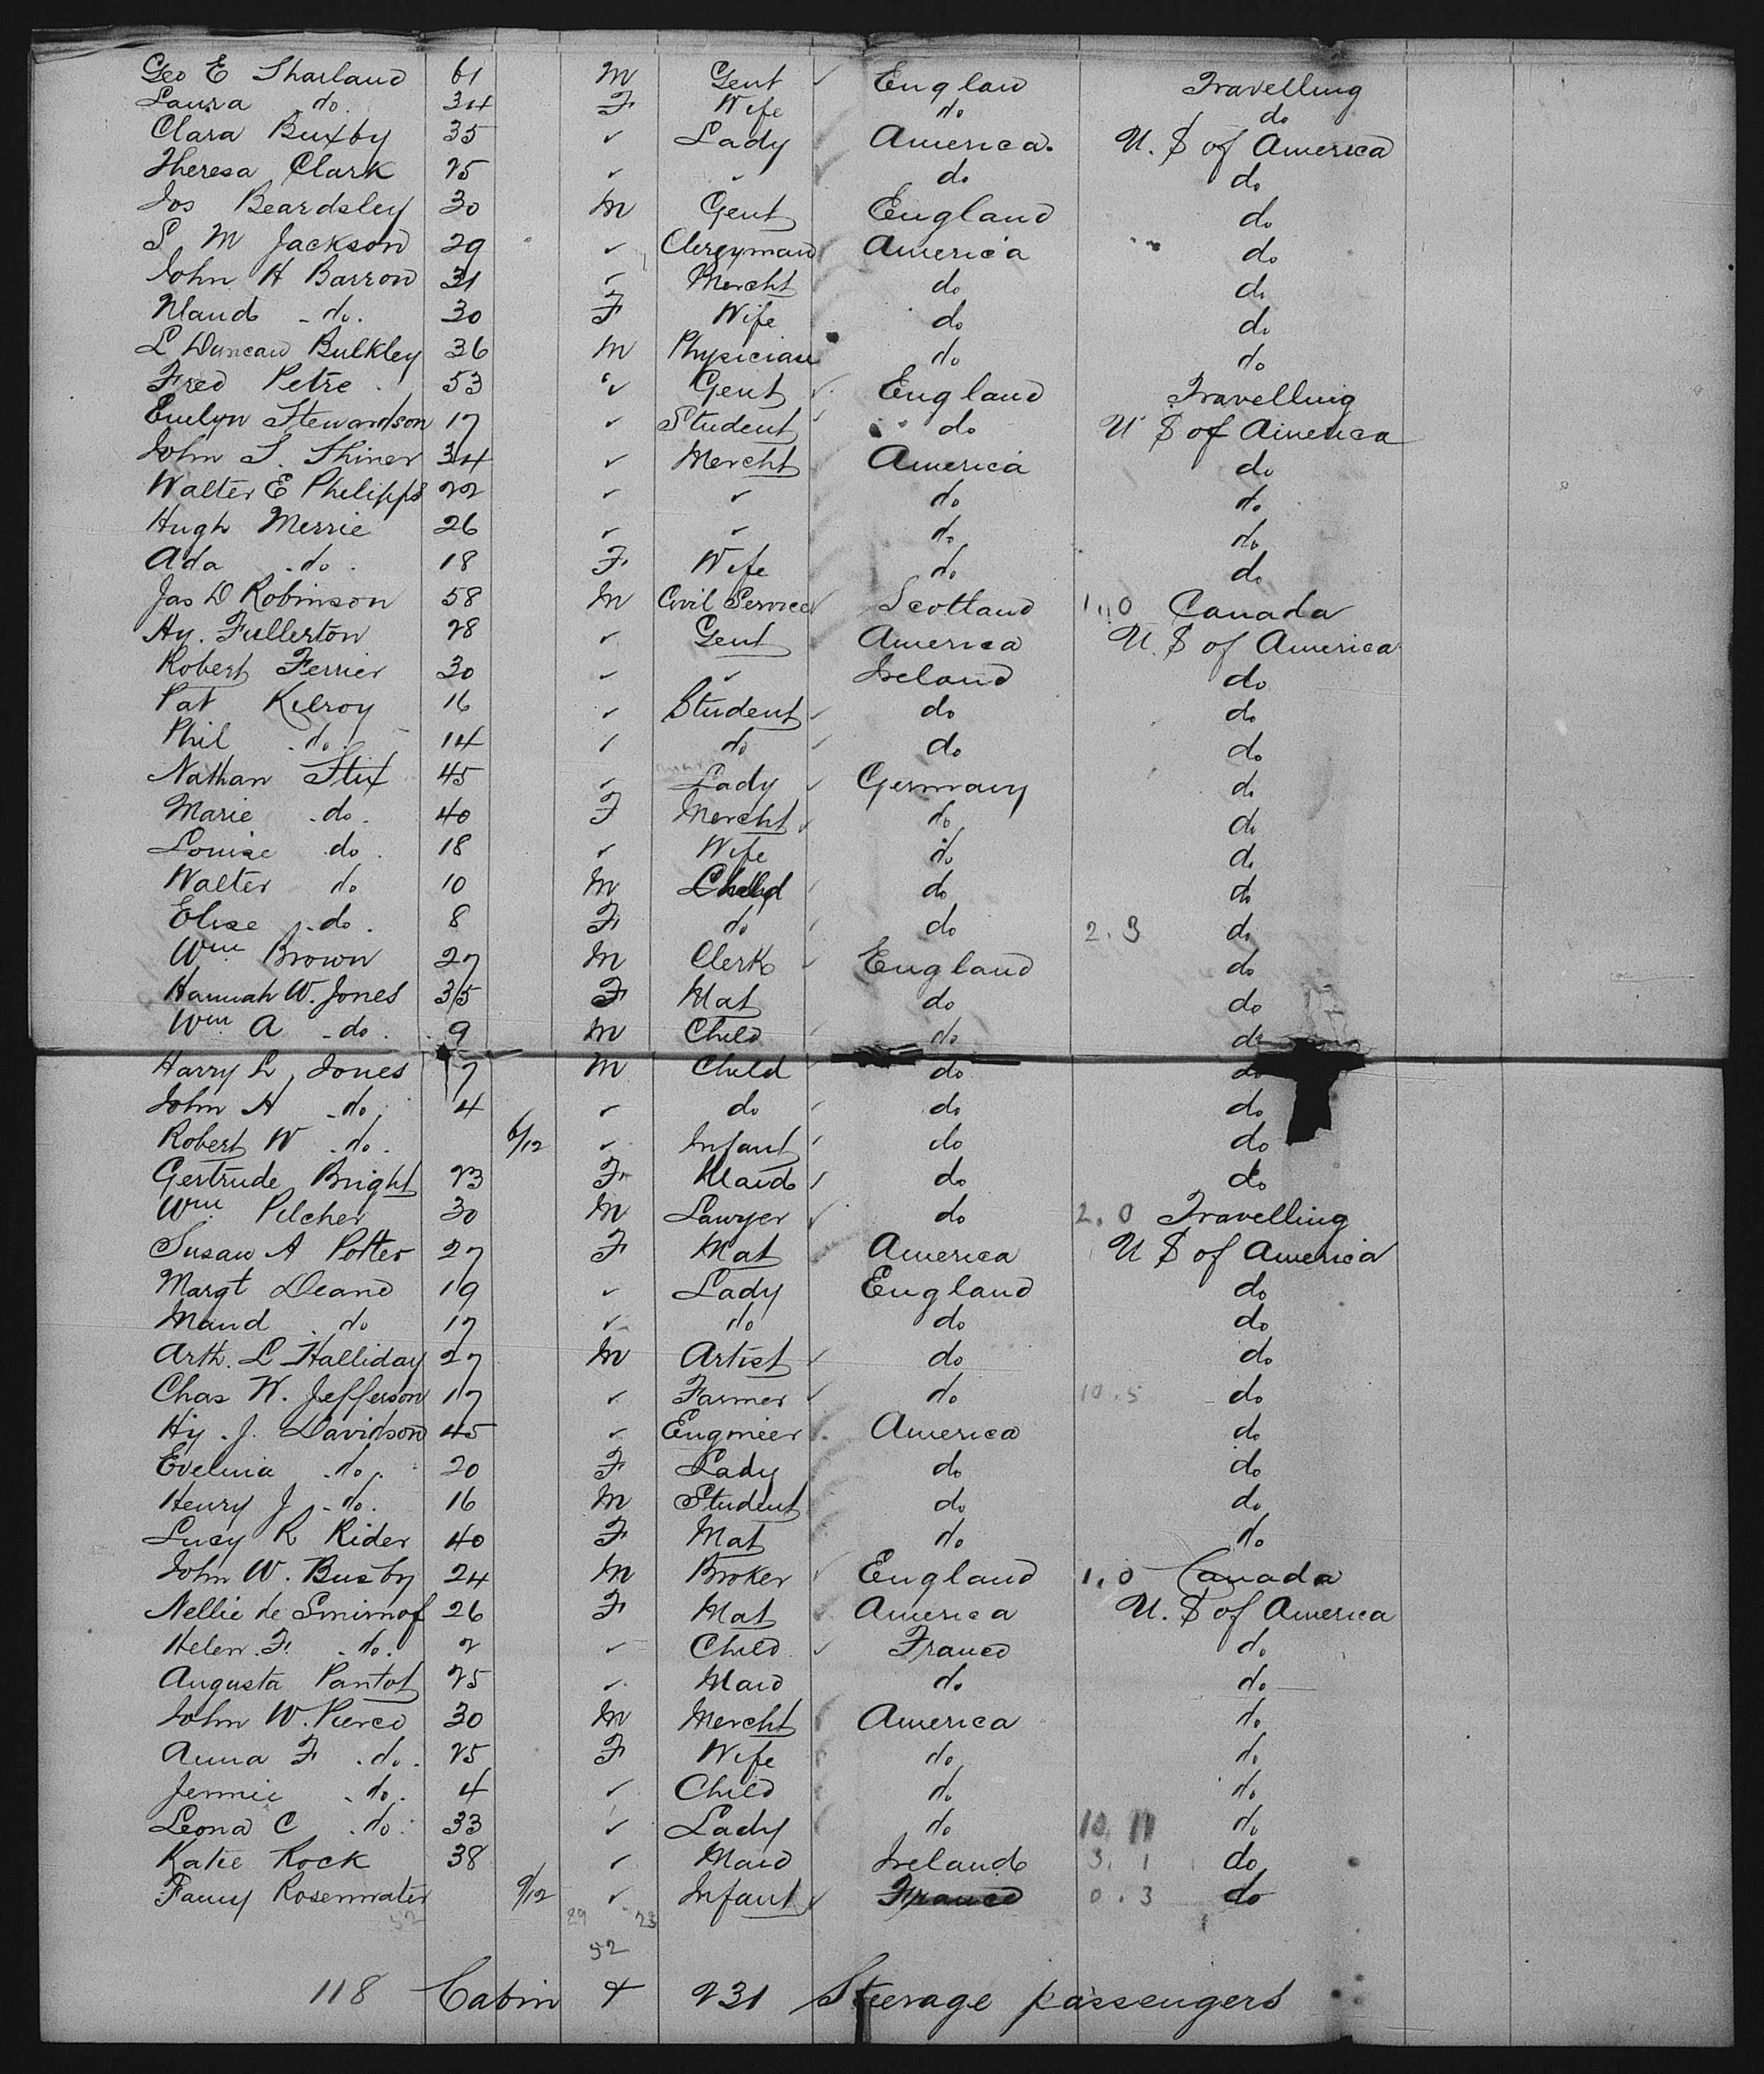 Geo E Sharland 61 M Gent ✓ England Travelling
Laura do. 34 F Wife do do
Clara Buxby 35 ✓ Lady America. U. S of America
Theresa Clark 25 ✓ ✓ do do
Jos Beardsley 30 M Gent England do
S M Jackson 29 ✓ Clergyman America do
John H Barron 31 ✓ Mercht do do
Maud - do. 30 F Wife do do
L Duncan Bulkley 36 M Physician do do
Fred Petre. 53 ✓ Gent ✓ England Travelling
Evelyn Stewardson 17 ✓ Student do U S of America
John S. Shiner 34 ✓ Mercht America do
Walter E Philipps 22 ✓ ✓ do do
Hugh Merrie 26 ✓ ✓ do do
Ada - do - 18 F Wife do do
Jas D Robinson 58 M Civil Service Scotland 1,,0 Canada
Hy. Fullerton 28 ✓ Gent America U. S of America
Robert Ferrier 30 ✓ ✓ Ireland do
Pat Kilroy 16 ✓ Student ✓ do do
Phil - do - 14 ✓ do ✓ do do
Nathan Stix 45 ✓ Lady ✓ Germany do
Marie - do - 40 F Mercht ✓ do do
Louise do. 18 ✓ Wife do do
Walter do 10 M Child do do
Elise - do. 8 F do do 2. 3 do
Wm Brown 27 M Clerk ✓ England do
Hannah W. Jones 35 F Mat do do
Wm A - do. 9 M Child do do
Harry L Jones 7 M Child do do
John H - do, 4 ✓ do do do
Robert W - do. 6/12 ✓ Infant do do
Gertrude Bright 23 F Maid do do
Wm Pilcher 30 M Lawyer ✓ do 2. 0 Travelling
Susan A Potter 27 F Mat America U S of America
Margt Deane 19 ✓ Lady England do
Maud do 17 ✓ do do do
Arth. L Halliday 27 M Artist ✓ do do
Chas W. Jefferson 17 ✓ Farmer ✓ do 10. 5 do
Hy. J. Davidson 45 ✓ Engineer America do
Evelina - do. 20 F Lady do do
Henry J - do. 16 M Student do do
Lucy R Rider 40 F Mat do do
John W. Busby 24 M Broker ✓ England 1, 0 Canada
Nellie de Smirnof 26 F Mat America U. S of America
Helen. F. - do. 2 ✓ Child ✓ France do
Augusta Pantot 25 ✓ Maid do do
John W. Pierce 30 M Mercht America do
Anna F - do. 25 F Wife do do
Jennie - do. 4 ✓ Child do do
Leona C - do. 33 ✓ Lady do 10. 11 do
Katie Rock 38 ✓ Maid Ireland 3. 1 do
Fanny Rosenwater 9/12 ✓ Infant ✓ France 0. 3 do
52 29 23
52
118 Cabin & 231 Steerage passengers